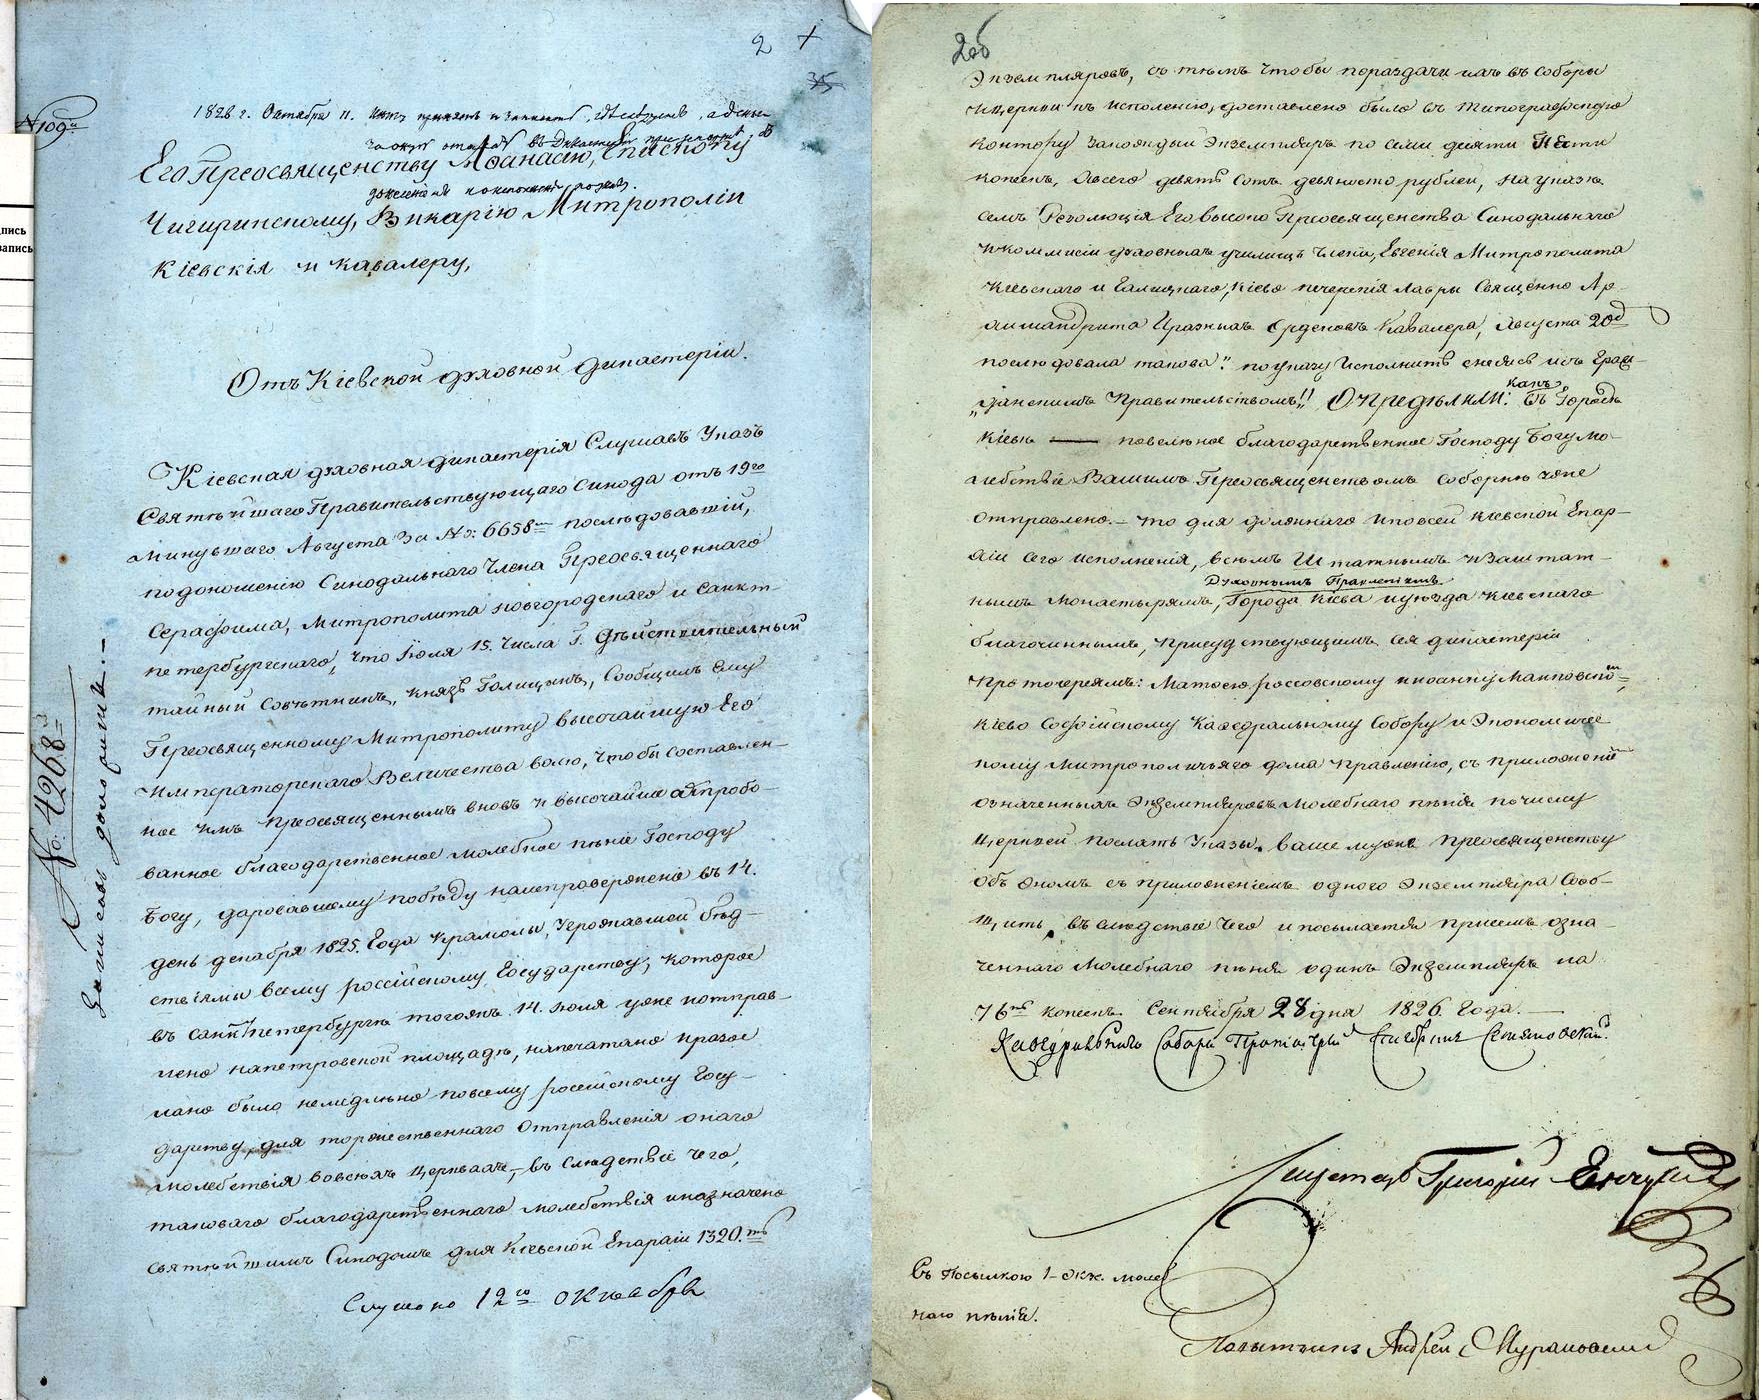 2 +
35
№ 109й
1826 г. Октября 11.
Его Преосвященству Афанасію, Епископу
Чигиринскому, Викарію Митрополіи
Кіевскія и Кавалеру,
Отъ Кіевской духовной дикастеріи.
Кіевская духовная дикастерія Слушавъ Указъ
Святѣйшаго Правительствующаго Синода отъ 19го
минувшаго Августа За №: 6658м послѣдовавшій,
по доношенію Синодальнаго Члена Преосвященнаго
Серафима, Митрополита новгородскаго и Санкт-
петербургскаго, что Іюля 15. Числа Г. Дѣйствительный
тайный Совѣтникъ, Князь Голицынъ, Сообщилъ Ему
Преосвященному Митрополиту высочайшую Его
Императорскаго Величества волю, чтобы составлен-
ное имъ Преосвященнымъ вновь и высочайше аппробо-
ванное благодарственное молебное пѣніе Господу
Богу, даровавшему побѣду на испроверженіе въ 14.
день декабря 1825. Года Крамолы, Угрожавшей бѣд-
ствіямы всему россійскому Государству, которое
въ Санктпетербургѣ тогожъ 14. Іюля уже и отправ-
лено на петровской площадѣ, напечатано и розос
лано было немедлѣно по всему россійскому Госу-
дарству, для торжественнаго Отправленія онаго
молебствія во всѣхъ Церквахъ, въ слѣдствіе Чего,
таковаго благодарственнаго молебствія и назначено
Святѣйшимъ Синодомъ для Кіевской Епархіи 1320.ть
Слушано 12го октября
№: 4268й
Записавъ доложить.-
2об
Экземпляровъ, съ тѣмъ чтобы по раздачи ихъ въ соборы
и церкви къ исполенію, доставлено было въ типографскую
контору за каждый Экземпляръ по семи десяти Шести
копеекъ, а всего девять Сотъ девяносто рублей, на указѣ
семъ Резолюція Его высоко Преосвященства Синодальнаго
и коммисіи духовныхъ училищъ Члена, Евгенія Митрополита
Кіевскаго и Галицкаго, Кіево печерскія Лавры Священно Ар-
химандрита И разныхъ Орденовъ Кавалера, Августа 20д
послѣдовала такова: „по указу Исполнить снесясь и съ Граж-
„данскимъ Правительствомъ!! Опредѣлили: какъ въ Городѣ
Кіевѣ — повелѣное благодарственное Господу Богу мо-
лебствіе Вашимъ Преосвященствомъ соборнѣ уже
отправлено.- то для должнаго и по всей Кіевской Епар-
хіи сего исполненія, всѣмъ Штатнымъ и Заштат-
Духовнымъ Правленіямъ
нымъ монастырямъ, Города Кіева и уѣзда Кіевскаго
благочиннымъ, присудствующимъ сея дикастеріи
Протоіереямъ: Матфею россовскому и иоанну Макповско
Кіево Софійскому Кафедральному Собору и Экономичес
кому Митрополичьяго дома Правленію, съ приложеніе
означенныхъ Экземпляровъ молебнаго пѣнія по числу
Церквей послать Указы, вашему же преосвященству
объ ономъ съ приложеніемъ одного Экземпляра Сооб-
щить, въ слѣдствіе Чего и посылается при семъ озна
ченнаго молебнаго пѣнія одинъ Экземпляръ на
76ть копеекъ Сентября 28 дня 1826. Года.-
Кафедральнаго Собора Протоіерей
Григорій
Съ посылкою 1- экж. молеб
наго пѣнія.
Повытчикъ Андрей